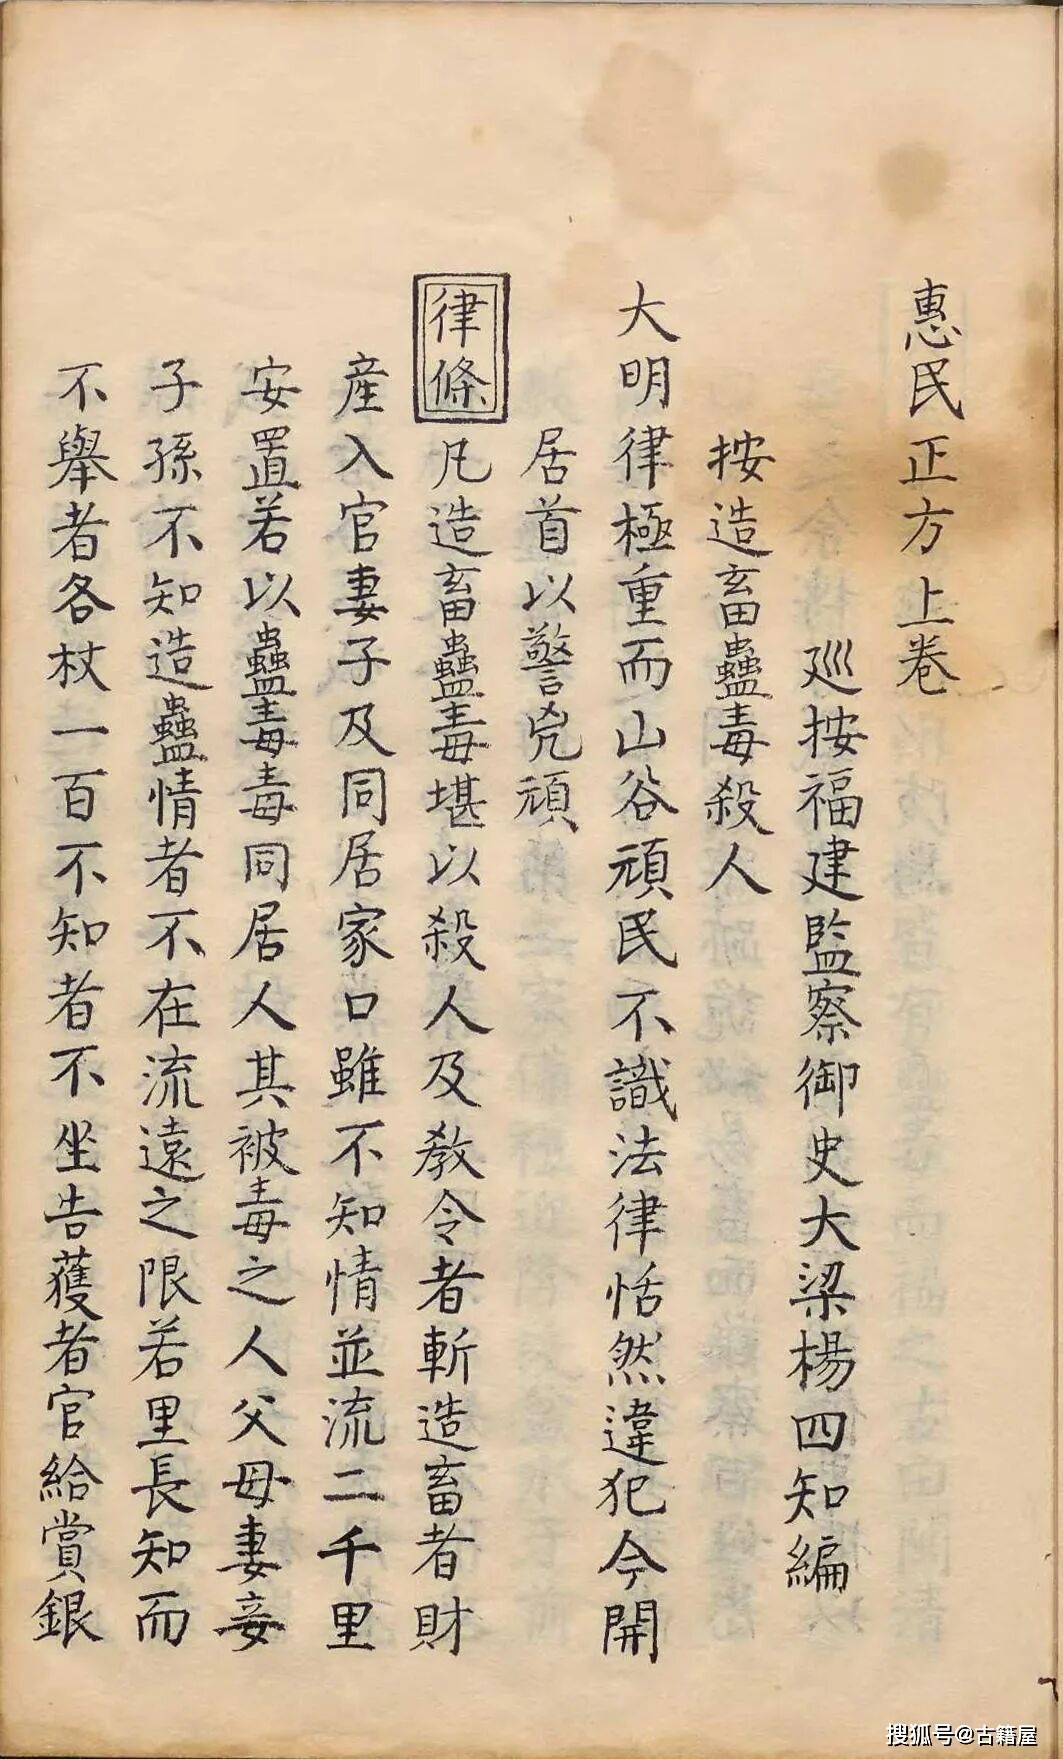 惠民正方上卷
廵按福建監察御史大梁楊四知編
按造畜蠱毒殺人
大明律極重而山谷頑民不識法律恬然違犯今開
居首以警兇頑
律條
凡造畜蠱毒堪以殺人及教令者斬造畜者財
産入官妻子及同居家口雖不知情並流二千里
安置若以蠱毒毒同居人其被毒之人父母妻妾
子孫不知造蠱情者不在流遠之限若里長知而
不舉者各杖一百不知者不坐告獲者官給賞銀
搜狐号@古籍屋